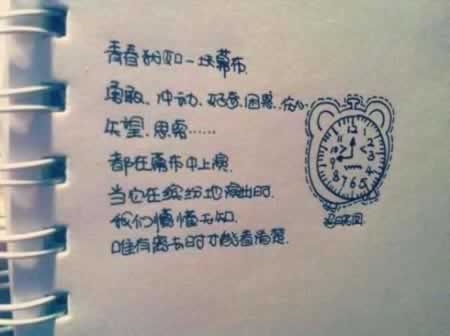 青春犹如一块幕布.
勇敢、冲动、好奇、困惑、
失望、思索……
都在幕布中上演.
当它在缤纷地演出时.
我们懵懂无知.
唯有离去时才能看清楚.
12 1 2 3 4 5 6 7 8 9